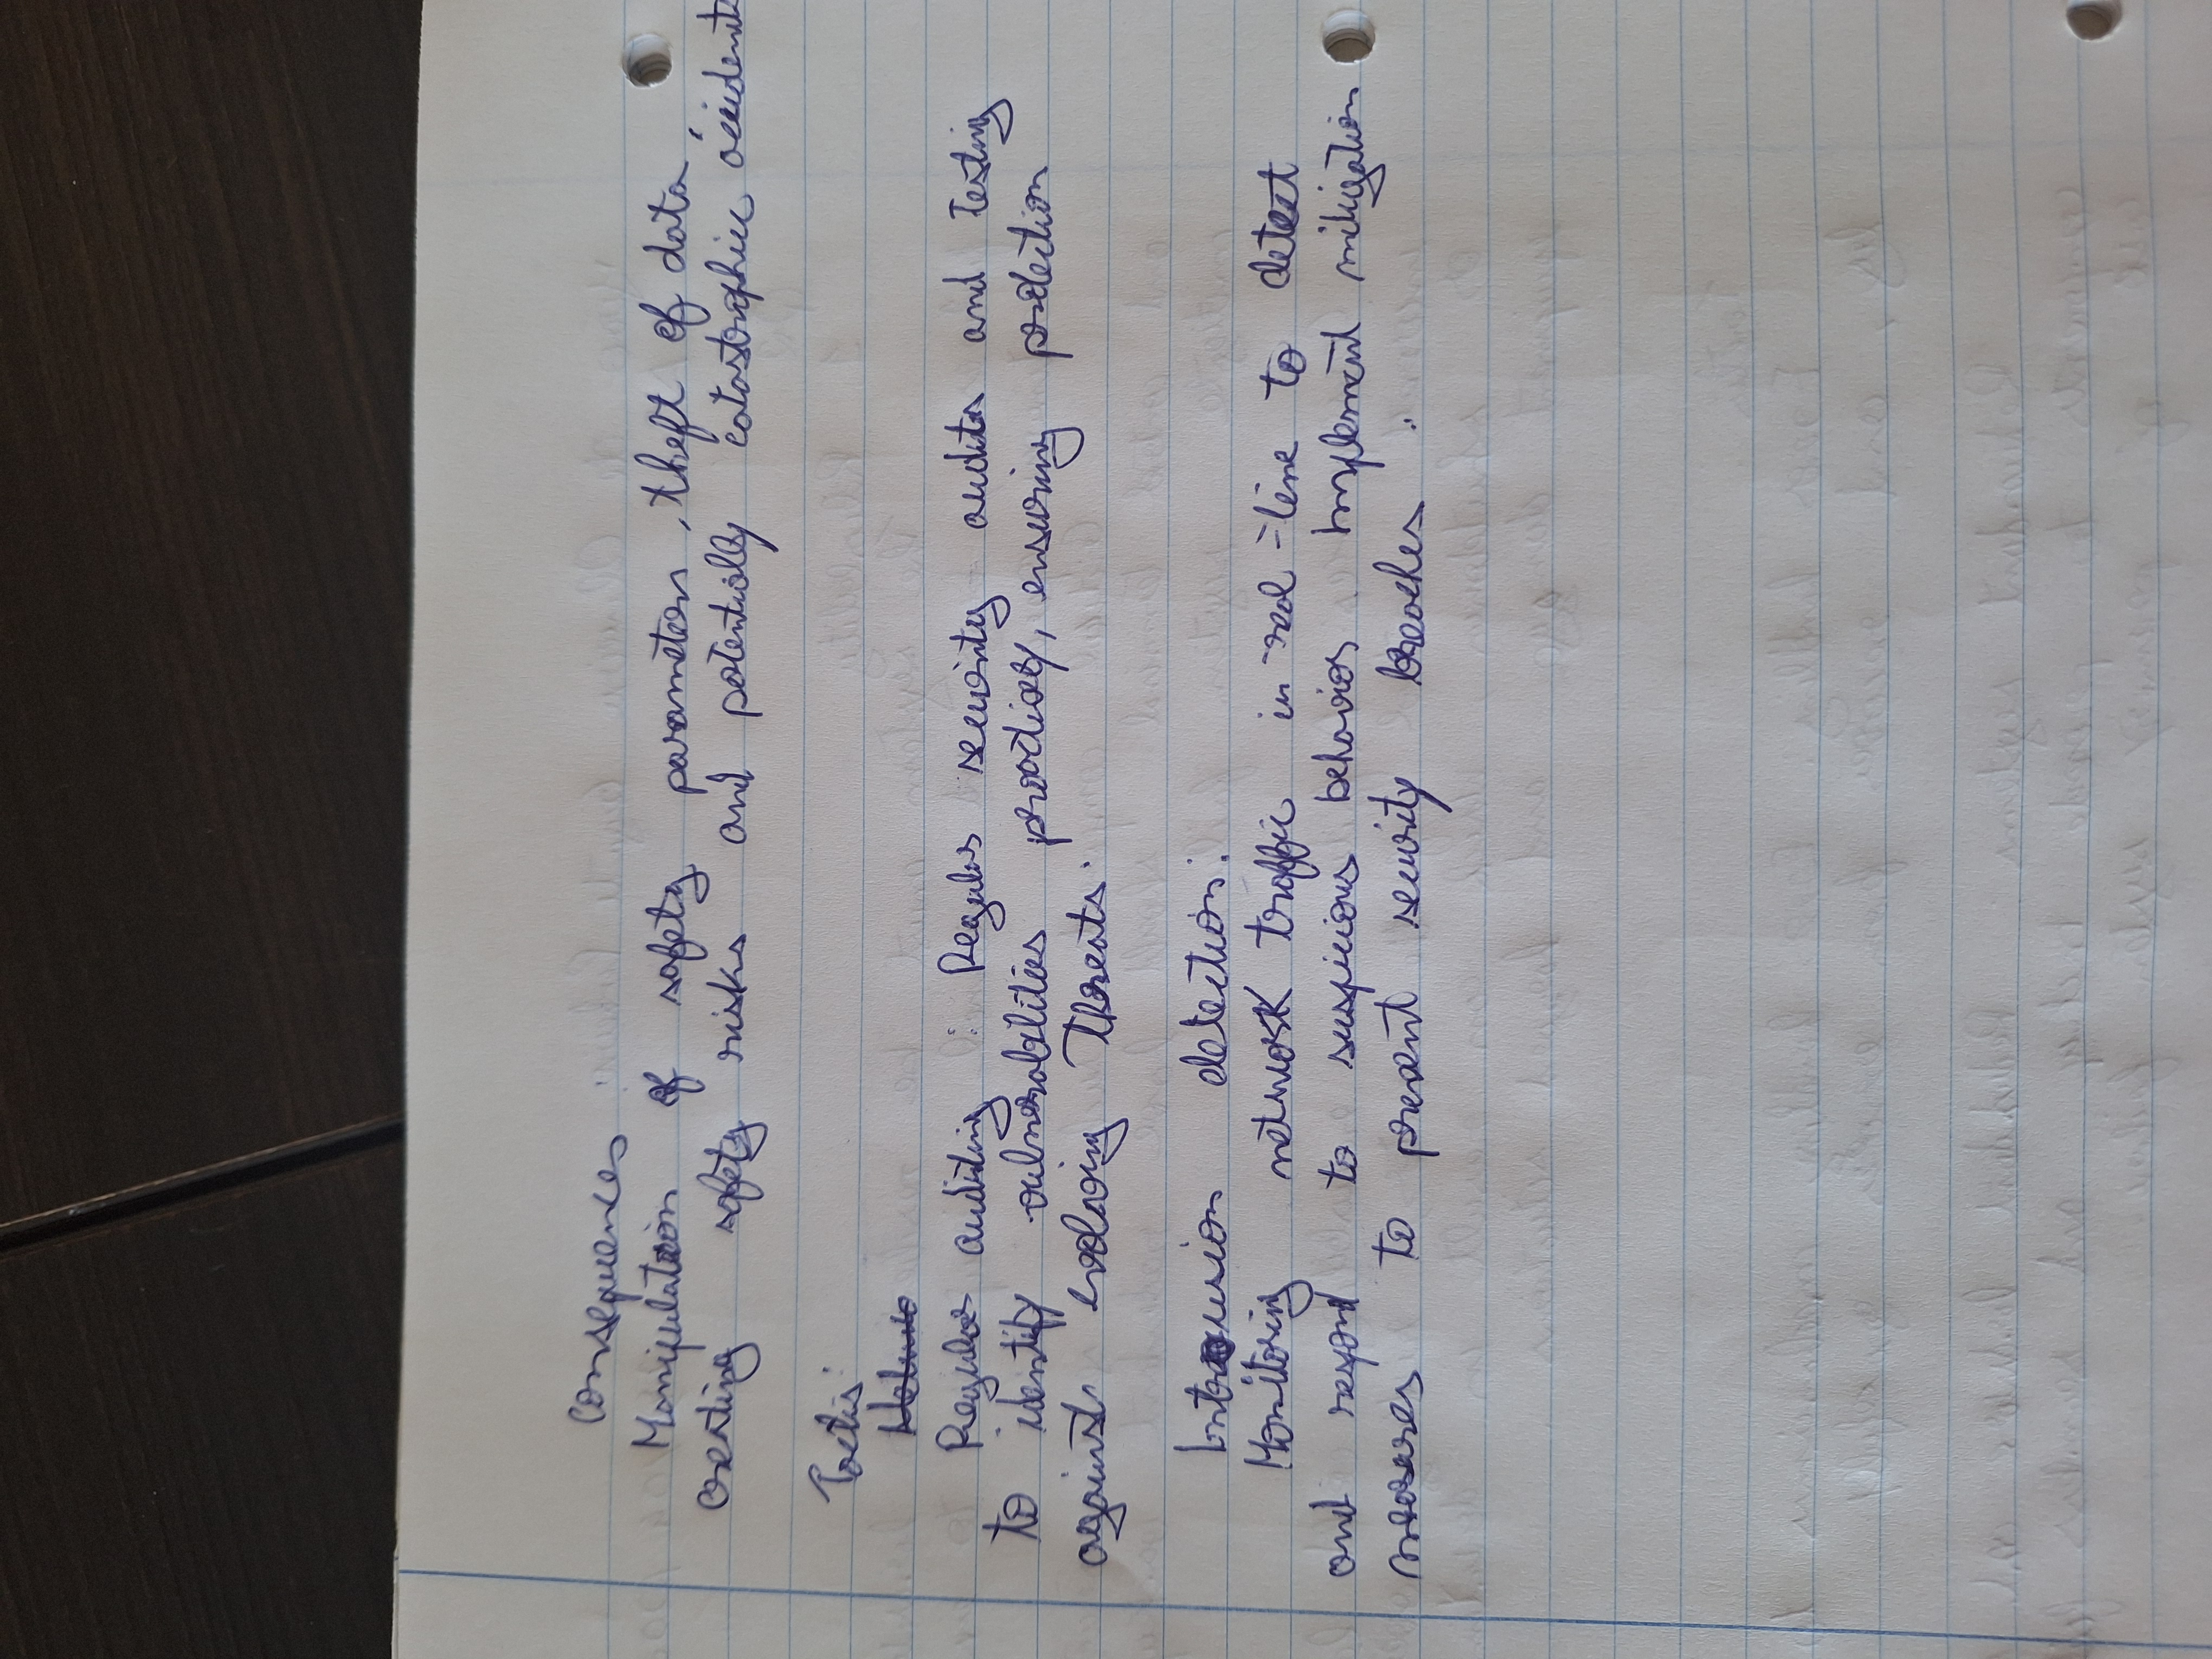 Consequences
Manipulation of safety parameters, theft of data,
creating safety risks and potentially catastrophic accident
Tactis:
Regular auditing: Regular security audits and testing
to identify vulnerabilities proactively, ensuring protection
against evolving threats.
Intrusion detection:
Monitoring network traffic in real-time to detect
and respond to suspicious behaviors implement mitigation
measures to prevent security breaches.